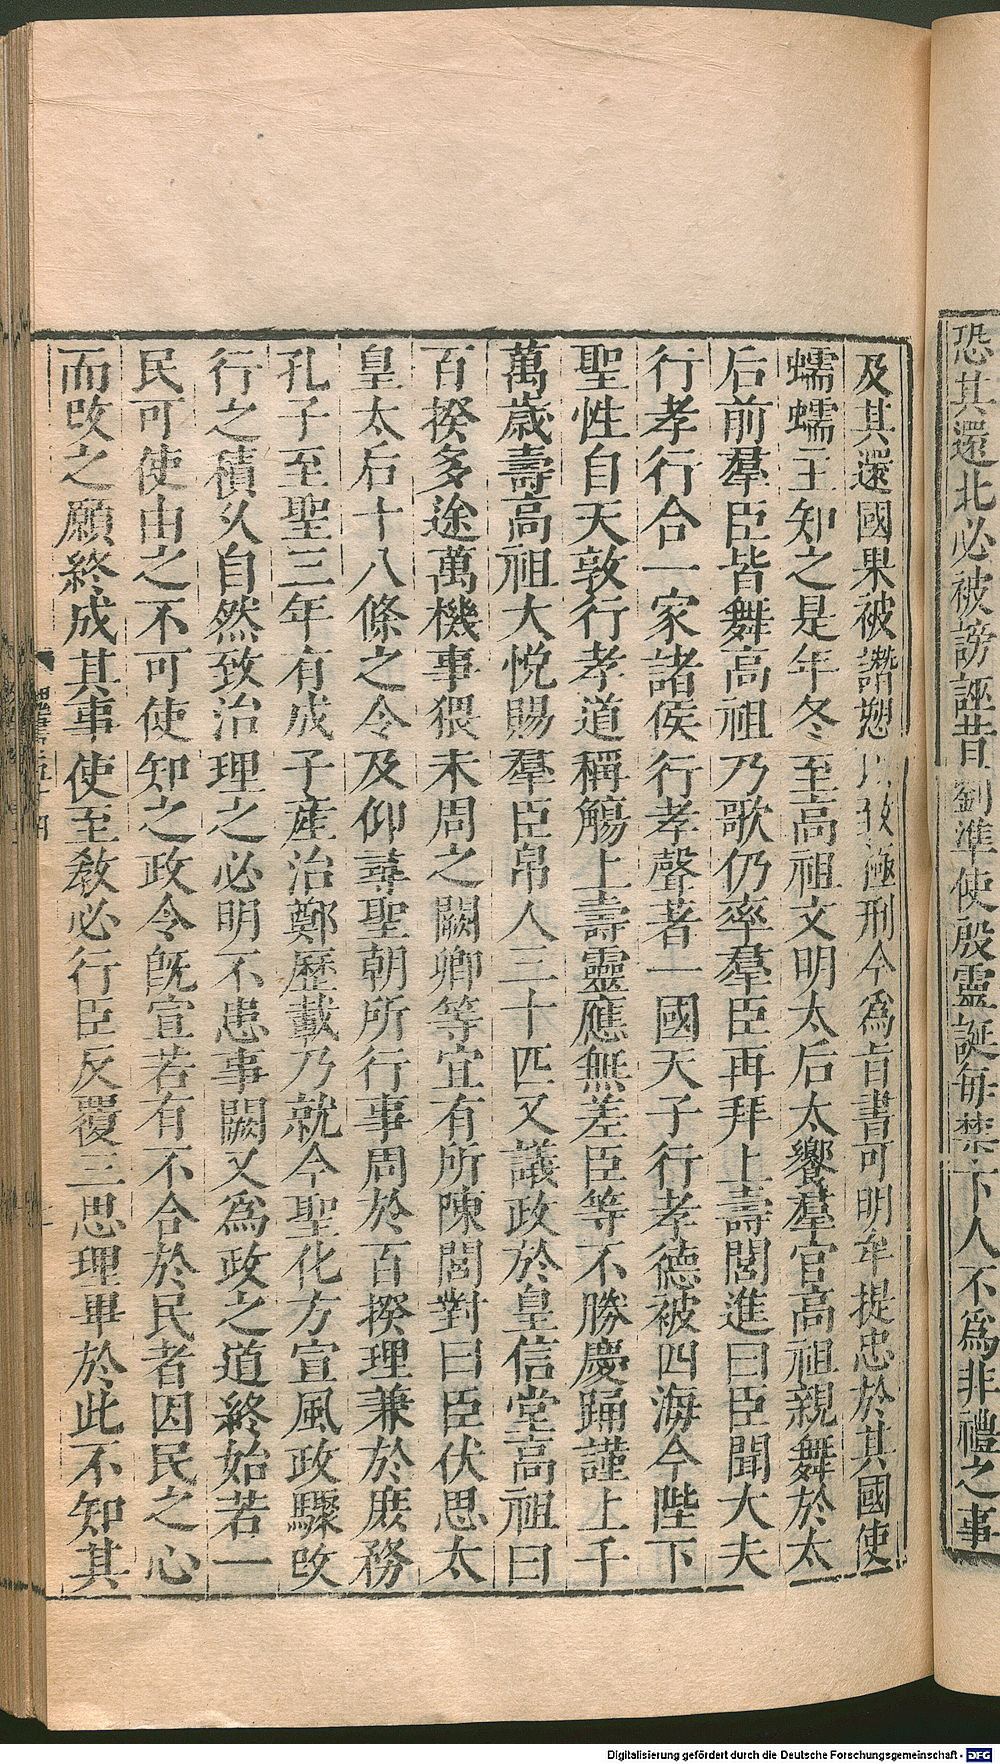 恐其還北必被謗誣昔劉準使殷靈誕每禁下人不為非禮之事
及其還國果被譖愬以致極刑今為旨書可明牟提忠於其國使
蠕蠕王知之是年冬至高祖文明太后大饗羣官高祖親舞於太
后前羣臣皆舞高祖乃歌仍率羣臣再拜上壽閭進曰臣聞大夫
行孝行合一家諸侯行孝聲著一國天子行孝德被四海今陛下
聖性自天敦行孝道稱觴上壽靈應無差臣等不勝慶踊謹上千
萬歲壽高祖大悅賜羣臣帛人三十匹又議政於皇信堂高祖曰
百揆多途萬機事猥未周之闕卿等宜有所陳閭對曰臣伏思太
皇太后十八條之令及仰尋聖朝所行事周於百揆理兼於庶務
孔子至聖三年有成子產治鄭歷載乃就今聖化方宣風政驟改
行之積久自然致治理之必明不患事闕又為政之道終始若一
民可使由之不可使知之政令旣宣若有不合於民者因民之心
而改之願終成其事使至敎必行臣反覆三思理畢於此不知其
Digitalisierung gefördert durch die Deutsche Forschungsgemeinschaft - DFG